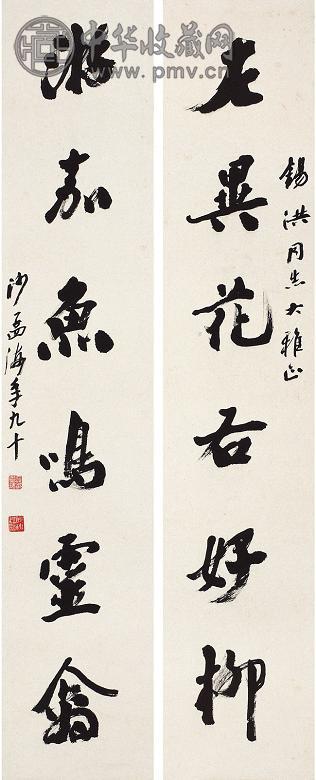 中华收藏网
www.pmv.cn
錫洪同志大雅正
左異花右好柳
淵嘉魚鳴靈禽
沙孟海年九十